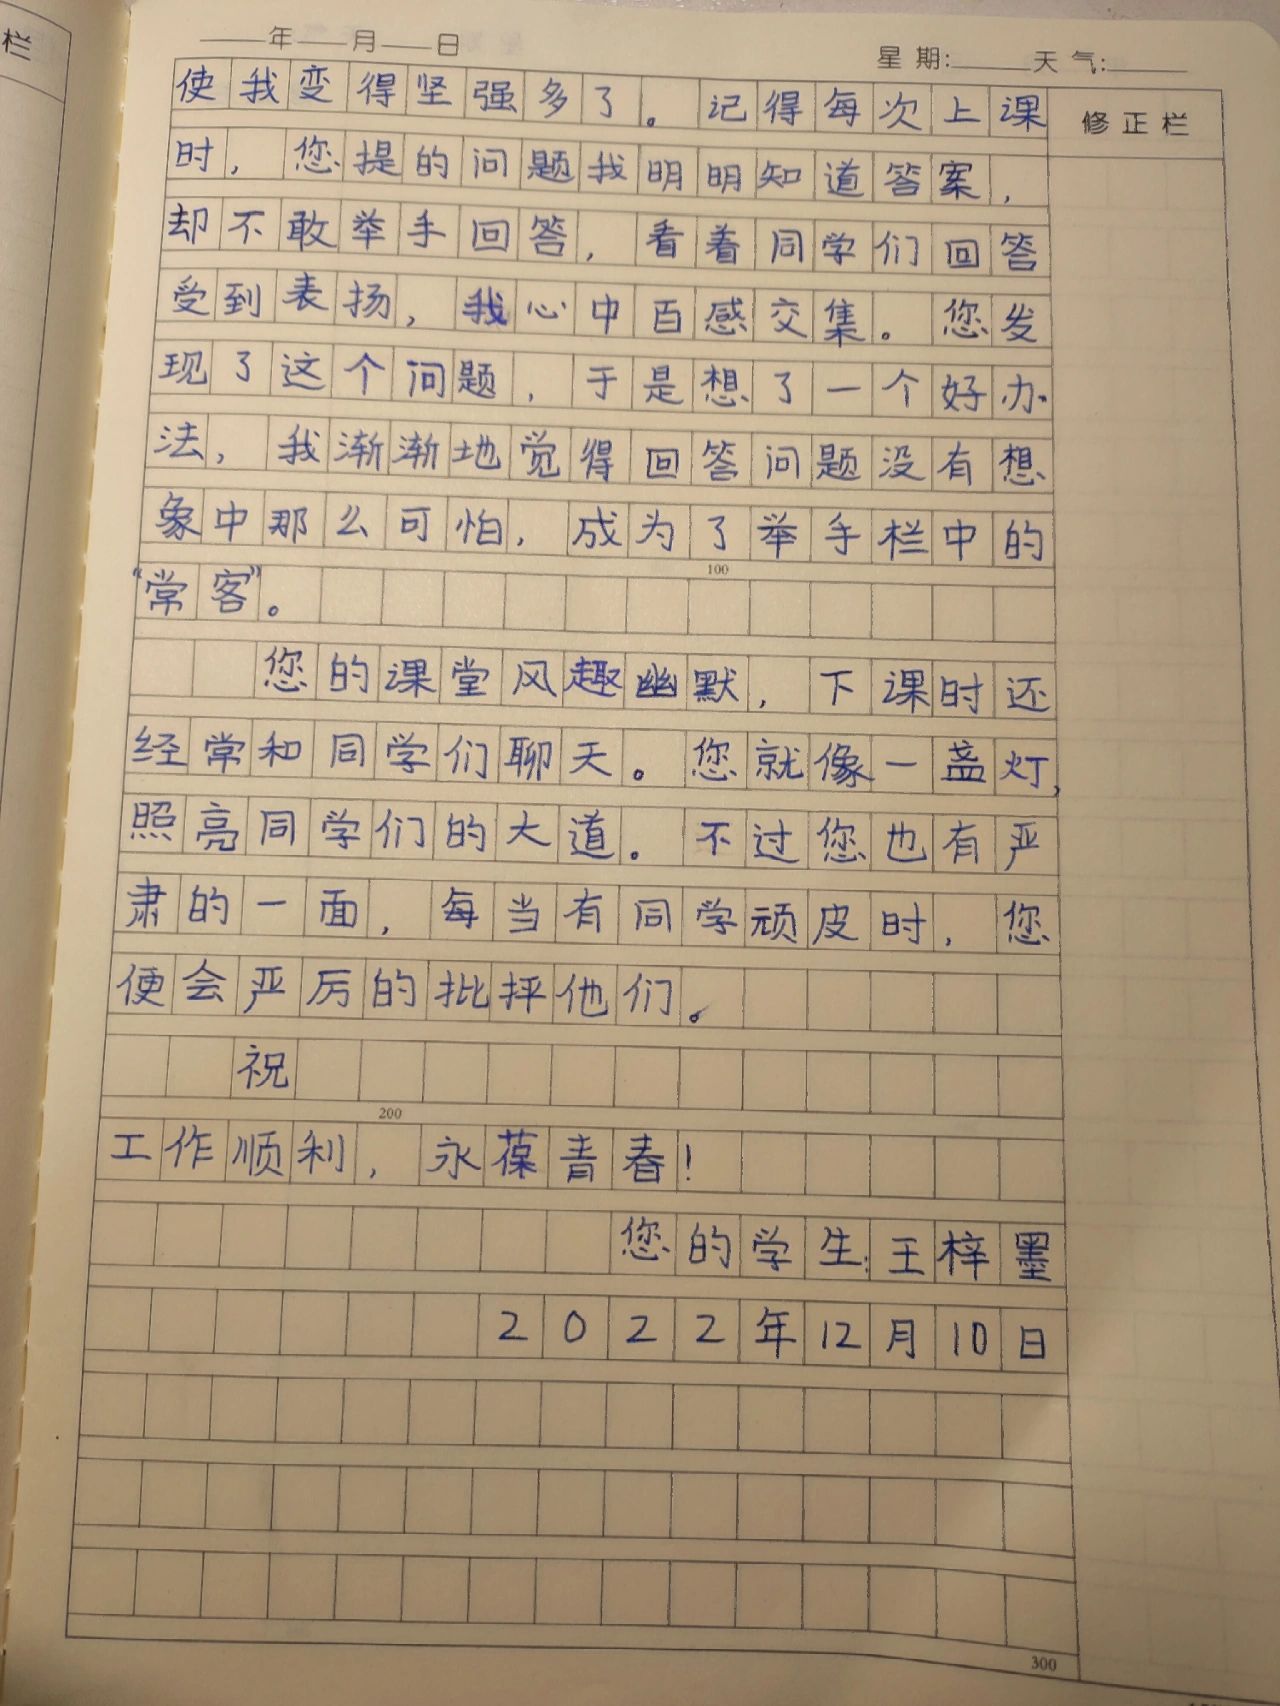 栏
——年——月——日
星期:____天气:____
修正栏
使我变得坚强多了。记得每次上课
时，您提的问题我明明知道答案，
却不敢举手回答，看着同学们回答
受到表扬，我心中百感交集。您发
现了这个问题，于是想了一个好办
法，我渐渐地觉得回答问题没有想
象中那么可怕，成为了举手栏中的
100
“常客”。
您的课堂风趣幽默，下课时还
经常和同学们聊天。您就像一盏灯，
照亮同学们的大道。不过您也有严
肃的一面，每当有同学顽皮时，您
便会严厉的批抨他们。
祝
200
工作顺利，永葆青春！
您的学生:王梓墨
2022年12月10日
300